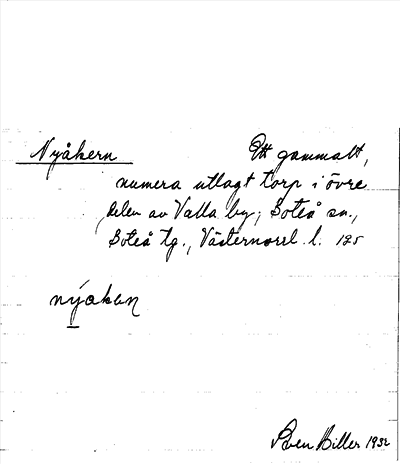 Nyåkern Ett gammalt,
numera utlagt torp i övre
delen av Valla by, Boteå sn.,
Boteå tg., Västernorrl. l. 125
nýaken
Sven Hiller 1932